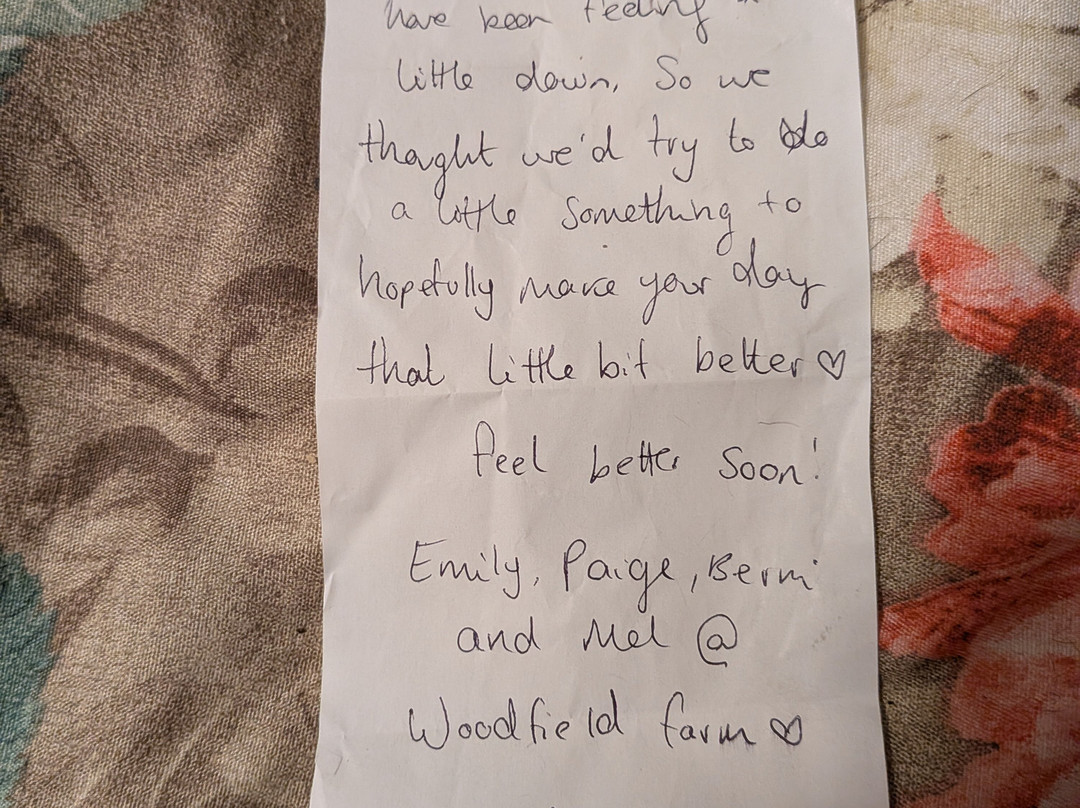 have been feeling
little down, So we
thought we'd try to do
a little something to
hopefully make your day
that little bit better ♡
feel better soon!
Emily, Paige, Berni
and Mel @
Woodfield farm ♡